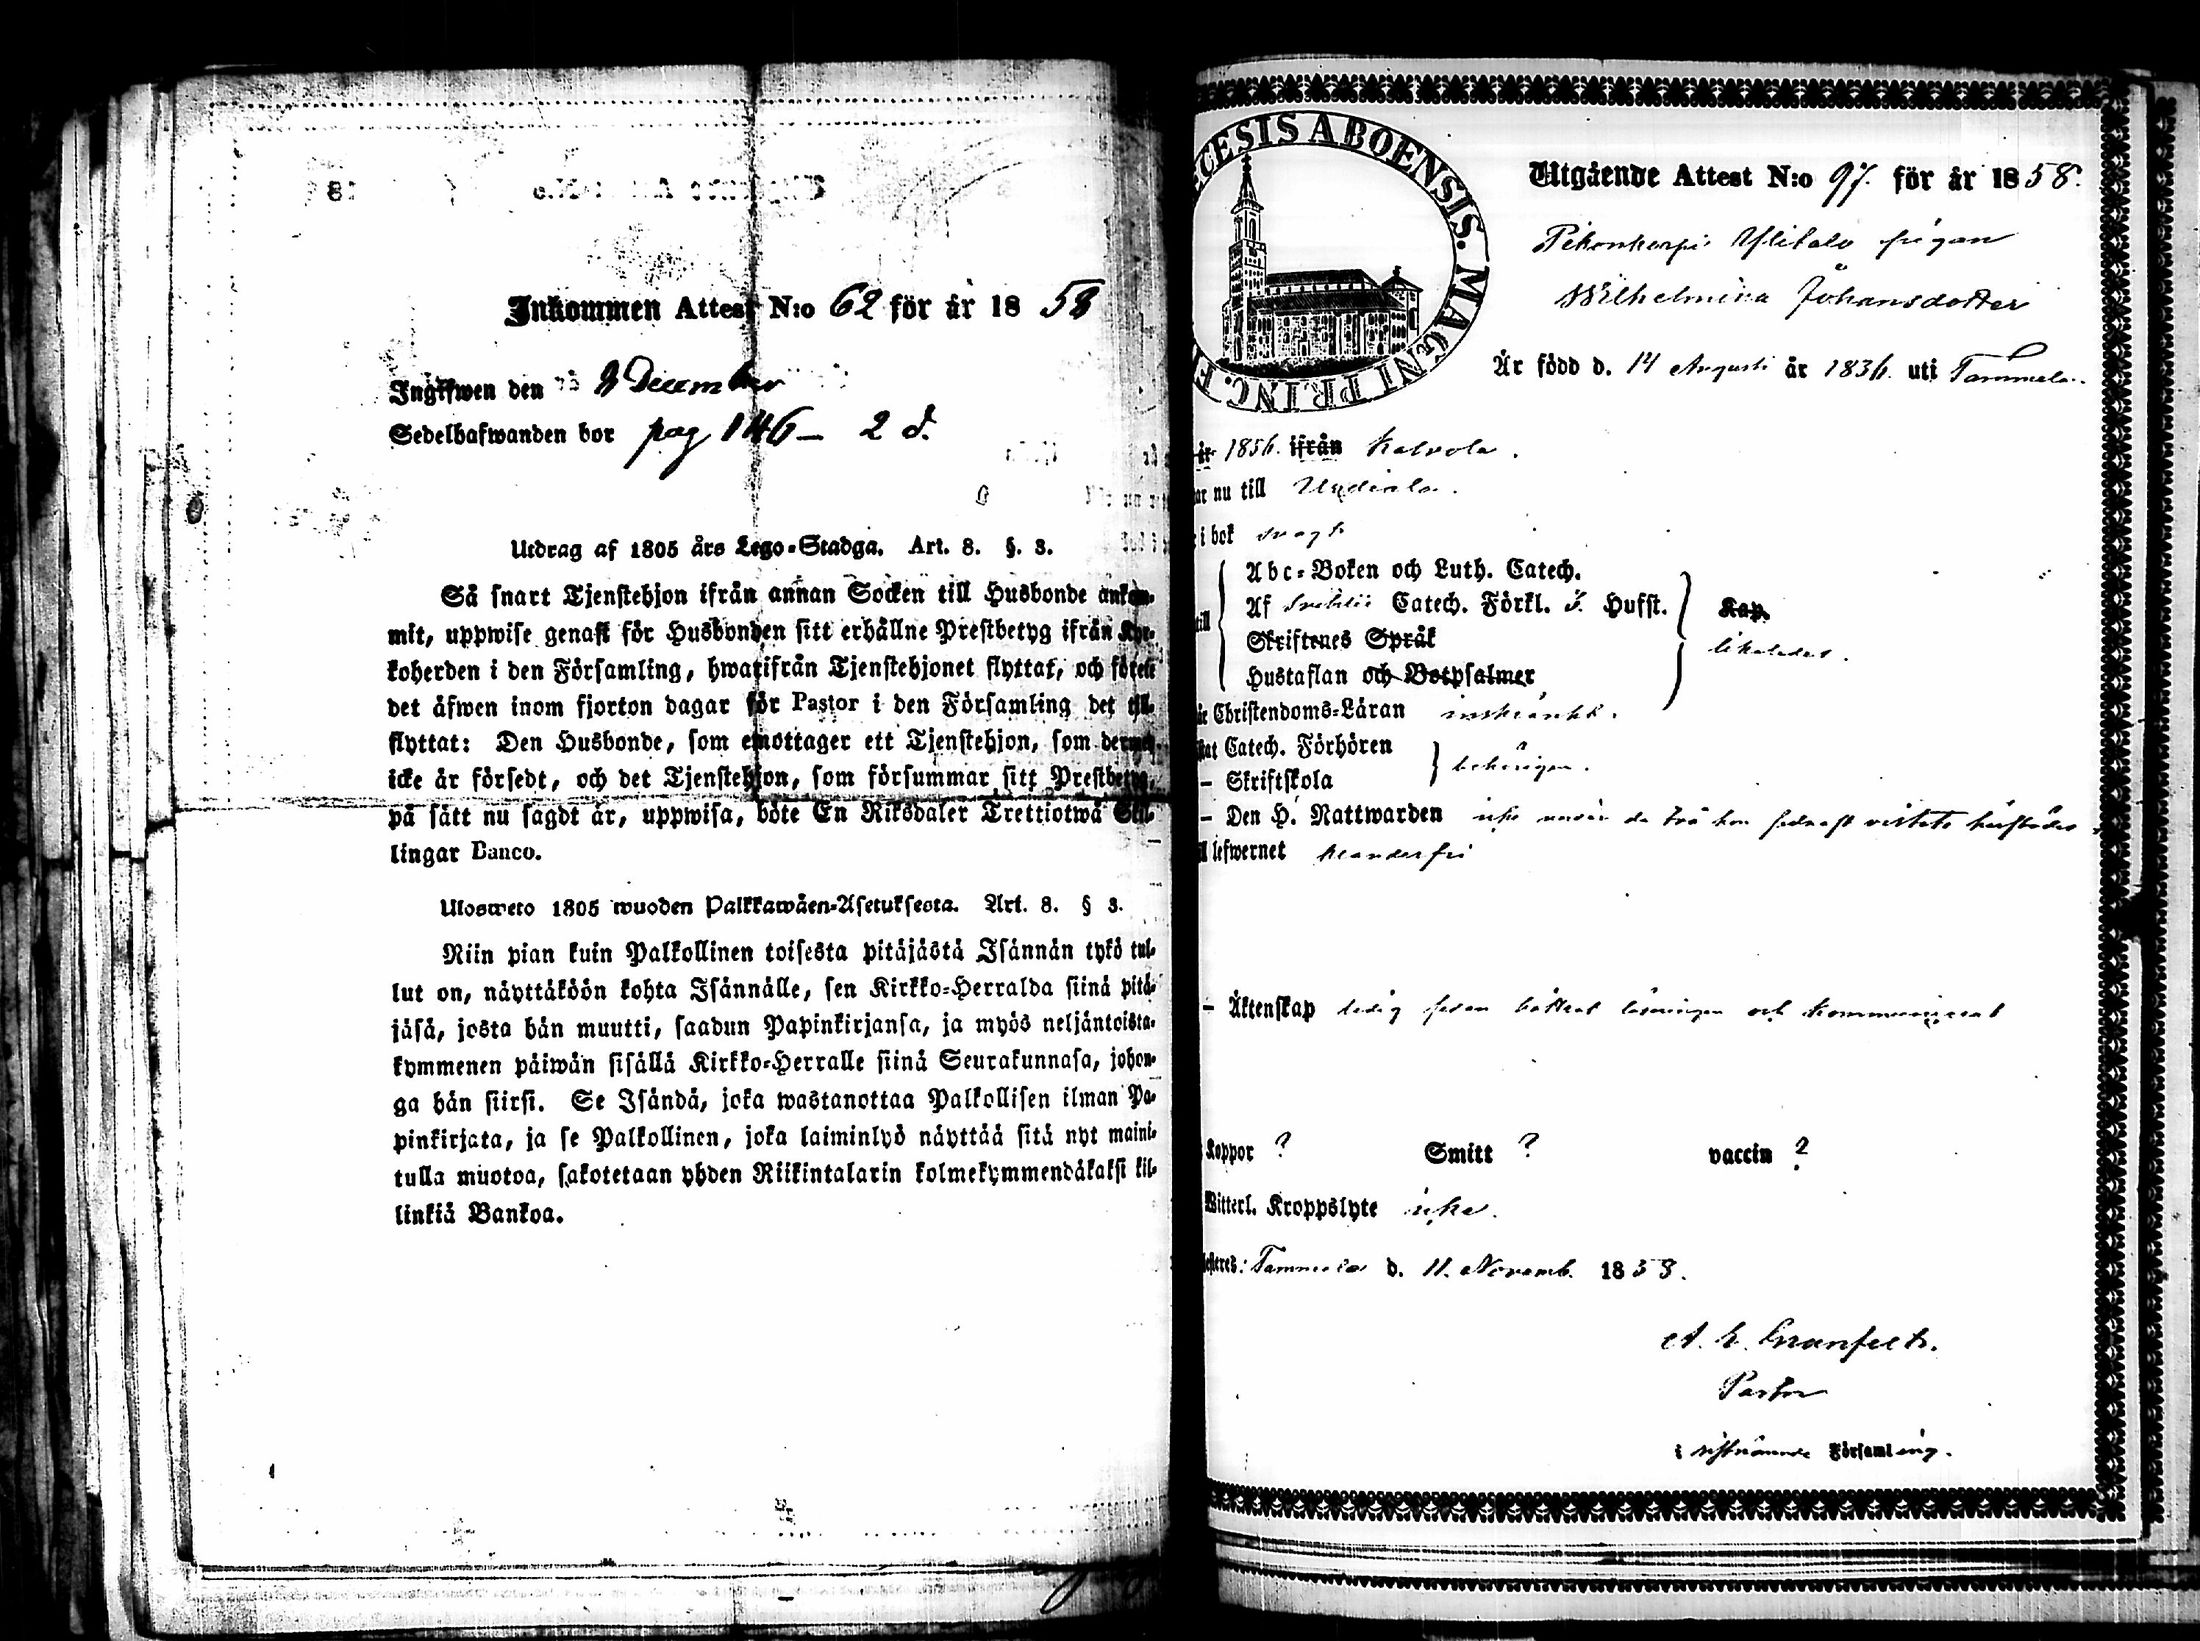 Inkommen Attest N:o 62 för år 1858
Ingifwen den 8 December
Sedelhafwanden bor pag 146 – 2 d.
Utdrag af 1805 års Lego-Stadga. Art. 8. §. 3.
Så snart Tjenstehjon ifrån annan Socken till Husbonde ankom-
mit, uppwise genast för Husbonden sitt erhållne Prestbetyg ifrån Kyr-
koherden i den Församling, hwarifrån Tjenstehjonet flyttat, och förete
det äfwen inom fjorton dagar för Pastor i den Församling det till-
flyttat: Den Husbonde, som emottager ett Tjenstehjon, som dermed
icke är försedt, och det Tjenstehjon, som försummar sitt Prestbetyg,
på sätt nu sagdt är, uppwisa, böte En Riksdaler Trettiotwå Skil-
lingar Banco.
Ulosweto 1805 wuoden Palkkawäen-Asetuksesta. Art. 8. § 3.
Niin pian kuin Palkollinen toisesta pitäjästä Isännän tykö tul-
lut on, näyttäköön kohta Isännälle, sen Kirkko-Herralda siinä pitä-
jäsä, josta hän muutti, saadun Papinkirjansa, ja myös neljäntoista-
kymmenen päiwän sisällä Kirkko-Herralle siinä Seurakunnasa, johon-
ga hän siirsi. Se Isändä, joka wastanottaa Palkollisen ilman Pa-
pinkirjata, ja se Palkollinen, joka laiminlyö näyttää sitä nyt maini-
tulla muotoa, sakotetaan yhden Riikintalarin kolmekymmendäkaksi kil-
linkiä Bankoa.
CESIS ABOENSIS. MAGNI PRINC. F
Utgående Attest N:o 97. för år 1858.
Pekonkorpi Ylitalo pigan
Wilhelmina Johansdotter
Är född d. 14 Augusti år 1836. uti Tammela.
år 1856. ifrån Kalvola.
ar nu till Urdiala.
i bok svagt
Abc-Boken och Luth. Catech.
till Af Svebilii Catech. Förkl. Hufst. Kap.
Skriftenes Språk
likaledes.
Hustaflan och Botpsalmer
är Christendoms-Läran inskränkt.
stat Catech. Förhören
– Skriftskola behörigen.
– Den H. Nattwarden icke
ll lefwernet klanderfri
– Äktenskap ledig sedan bättrat läsningen och kommunicerat
Koppor ? Smitt ? vaccin ?
Witterl. Kroppslyte icke.
esteres: Tammela d. 11. Novemb. 1858.
A. E. Granfelt.
Pastor
i sistnämnde Församling.